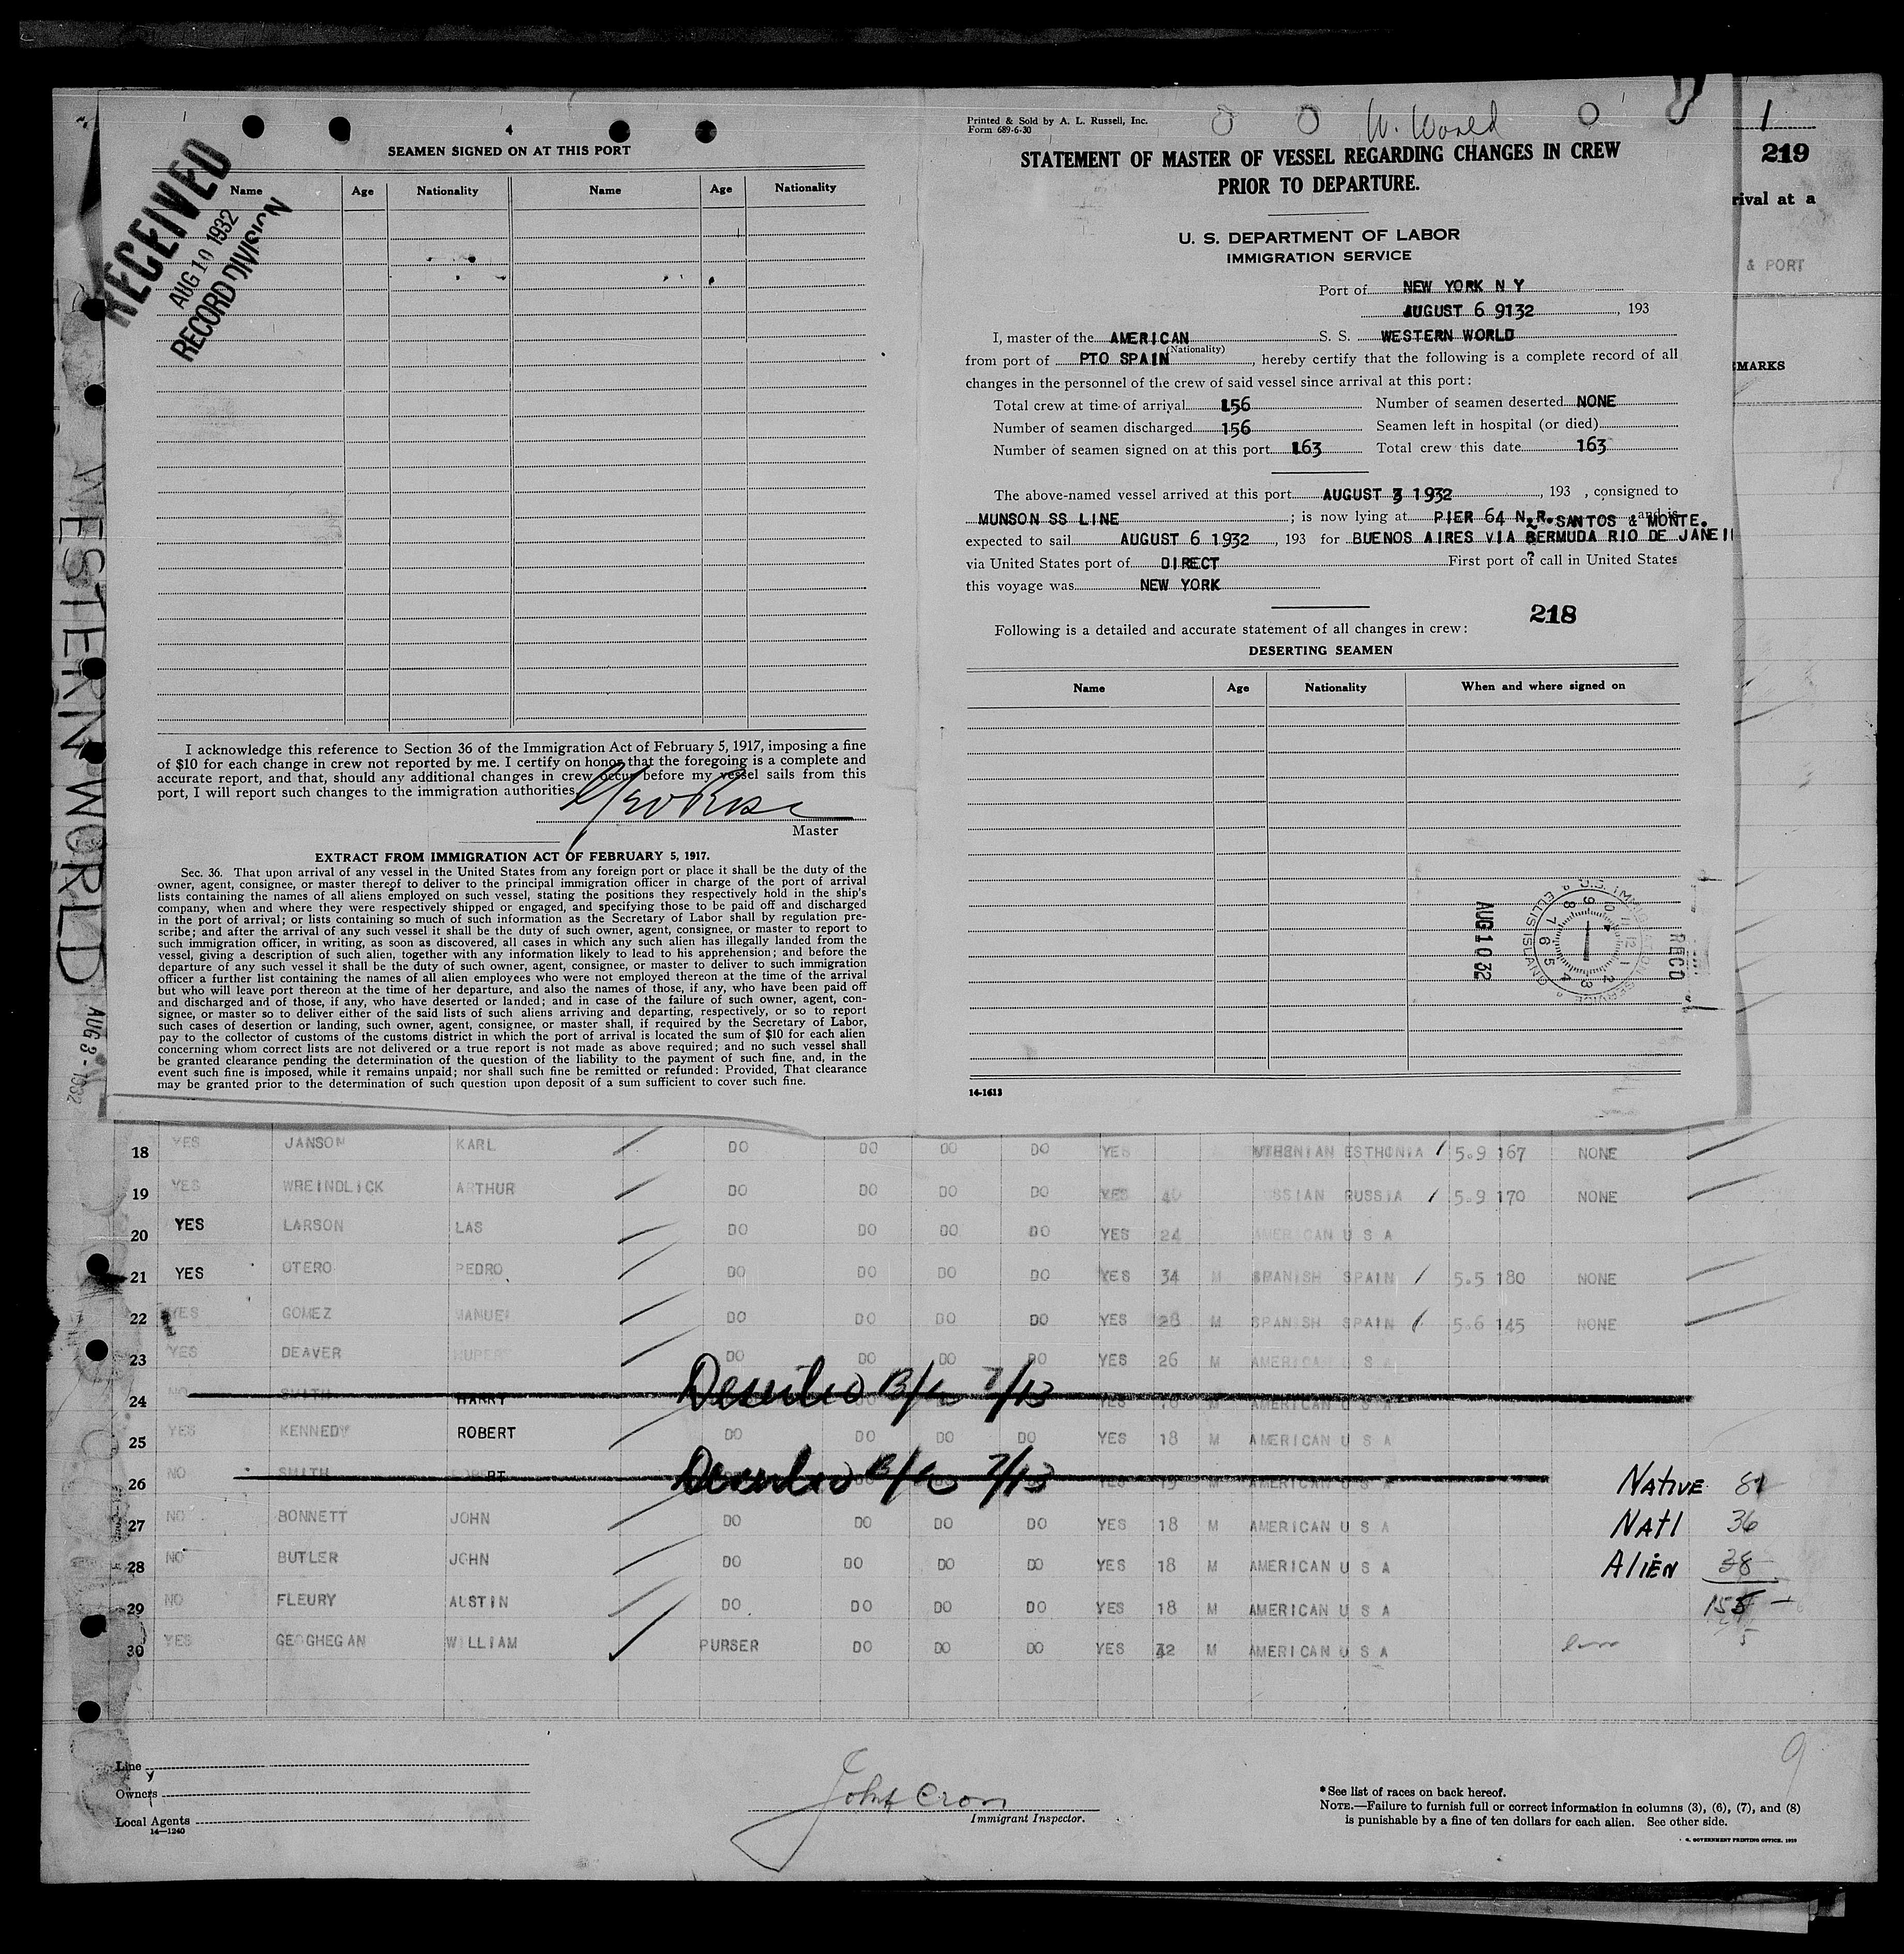 4
SEAMEN SIGNED ON AT THIS PORT
Name Age Nationality Name Age Nationality
RECEIVED
AUG 10 1932
RECORD DIVISION
I acknowledge this reference to Section 36 of the Immigration Act of February 5, 1917, imposing a fine
of $10 for each change in crew not reported by me. I certify on honor that the foregoing is a complete and
accurate report, and that, should any additional changes in crew occur before my vessel sails from this
port, I will report such changes to the immigration authorities.
Geo Rose
Master
EXTRACT FROM IMMIGRATION ACT OF FEBRUARY 5, 1917.
Sec. 36. That upon arrival of any vessel in the United States from any foreign port or place it shall be the duty of the
owner, agent, consignee, or master thereof to deliver to the principal immigration officer in charge of the port of arrival
lists containing the names of all aliens employed on such vessel, stating the positions they respectively hold in the ship's
company, when and where they were respectively shipped or engaged, and specifying those to be paid off and discharged
in the port of arrival; or lists containing so much of such information as the Secretary of Labor shall by regulation pre-
scribe; and after the arrival of any such vessel it shall be the duty of such owner, agent, consignee, or master to report to
such immigration officer, in writing, as soon as discovered, all cases in which any such alien has illegally landed from the
vessel, giving a description of such alien, together with any information likely to lead to his apprehension; and before the
departure of any such vessel it shall be the duty of such owner, agent, consignee, or master to deliver to such immigration
officer a further list containing the names of all alien employees who were not employed thereon at the time of the arrival
but who will leave port thereon at the time of her departure, and also the names of those, if any, who have been paid off
and discharged and of those, if any, who have deserted or landed; and in case of the failure of such owner, agent, con-
signee, or master so to deliver either of the said lists of such aliens arriving and departing, respectively, or so to report
such cases of desertion or landing, such owner, agent, consignee, or master shall, if required by the Secretary of Labor,
pay to the collector of customs of the customs district in which the port of arrival is located the sum of $10 for each alien
concerning whom correct lists are not delivered or a true report is not made as above required; and no such vessel shall
be granted clearance pending the determination of the question of the liability to the payment of such fine, and, in the
event such fine is imposed, while it remains unpaid; nor shall such fine be remitted or refunded: Provided, That clearance
may be granted prior to the determination of such question upon deposit of a sum sufficient to cover such fine.
WESTERN WORLD
AUG 3 - 1932
Printed & Sold by A. L. Russell, Inc.
Form 689-6-30
W. World
STATEMENT OF MASTER OF VESSEL REGARDING CHANGES IN CREW
PRIOR TO DEPARTURE.
U. S. DEPARTMENT OF LABOR
IMMIGRATION SERVICE
Port of NEW YORK N Y
AUGUST 6 9132 , 193
I, master of the AMERICAN S. S. WESTERN WORLD
(Nationality)
from port of PTO SPAIN , hereby certify that the following is a complete record of all
changes in the personnel of the crew of said vessel since arrival at this port:
Total crew at time of arrival 156 Number of seamen deserted NONE
Number of seamen discharged 156 Seamen left in hospital (or died)
Number of seamen signed on at this port 163 Total crew this date 163
The above-named vessel arrived at this port AUGUST 3 1932 , 193 , consigned to
MUNSON SS LINE ; is now lying at PIER 64 N.R. and is
SANTOS & MONTE.
expected to sail AUGUST 6 1932 , 193 for BUENOS AIRES VIA BERMUDA RIO DE JANEI
via United States port of DIRECT First port of call in United States
this voyage was NEW YORK
218
Following is a detailed and accurate statement of all changes in crew:
DESERTING SEAMEN
Name Age Nationality When and where signed on
AUG 10 32
RECD
U.S. IMMIGRATION SERVICE
ELLIS ISLAND
14-1613
1
219
rival at a
& PORT
MARKS
18 YES JANSON KARL DO DO DO DO YES ESTHONIA 5.9 167 NONE
19 YES WREINDLICK ARTHUR DO DO DO DO YES 40 SSIAN RUSSIA 5.9 170 NONE
20 YES LARSON LAS DO DO DO DO YES 24 AMERICAN U S A
21 YES OTERO PEDRO DO DO DO DO YES 34 M SPANISH SPAIN 5.5 180 NONE
22 YES GOMEZ MANUEL DO DO DO DO YES 28 M SPANISH SPAIN 5.6 145 NONE
23 YES DEAVER RUPERT DO DO DO DO YES 26 M AMERICAN U S A
24 NO SMITH HARRY YES 18 M AMERICAN U S A
7/13
25 YES KENNEDY ROBERT DO DO DO DO YES 18 M AMERICAN U S A
26 NO SMITH YES 19 M AMERICAN U S A
7/13
27 NO BONNETT JOHN DO DO DO DO YES 18 M AMERICAN U S A
28 NO BUTLER JOHN DO DO DO DO YES 18 M AMERICAN U S A
29 NO FLEURY AUSTIN DO DO DO DO YES 18 M AMERICAN U S A
30 YES GEOGHEGAN WILLIAM PURSER DO DO DO YES 32 M AMERICAN U S A
NATIVE 81
NATl 36
AliEN 38
155
Line
Owners
Local Agents
14—1240
John Cron
Immigrant Inspector.
9
* See list of races on back hereof.
NOTE.—Failure to furnish full or correct information in columns (3), (6), (7), and (8)
is punishable by a fine of ten dollars for each alien. See other side.
GOVERNMENT PRINTING OFFICE. 1929